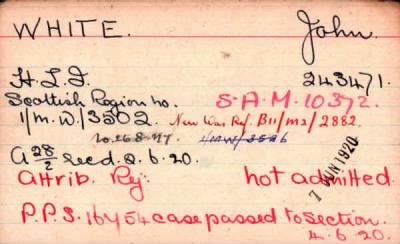 WHITE. John.
H.L.I. 243471.
Scottish Region No. S.A.M. 10372.
1/M.W/3502. New War Ref. B11/M2/2882.
10.268.N7. 1/MW/3526
A 28/2 recd. 2.6.20.
7 JUN 1920
Attrib. Rej. not admitted.
P.P.S. 16454 case passed to Section.
4.6.20.